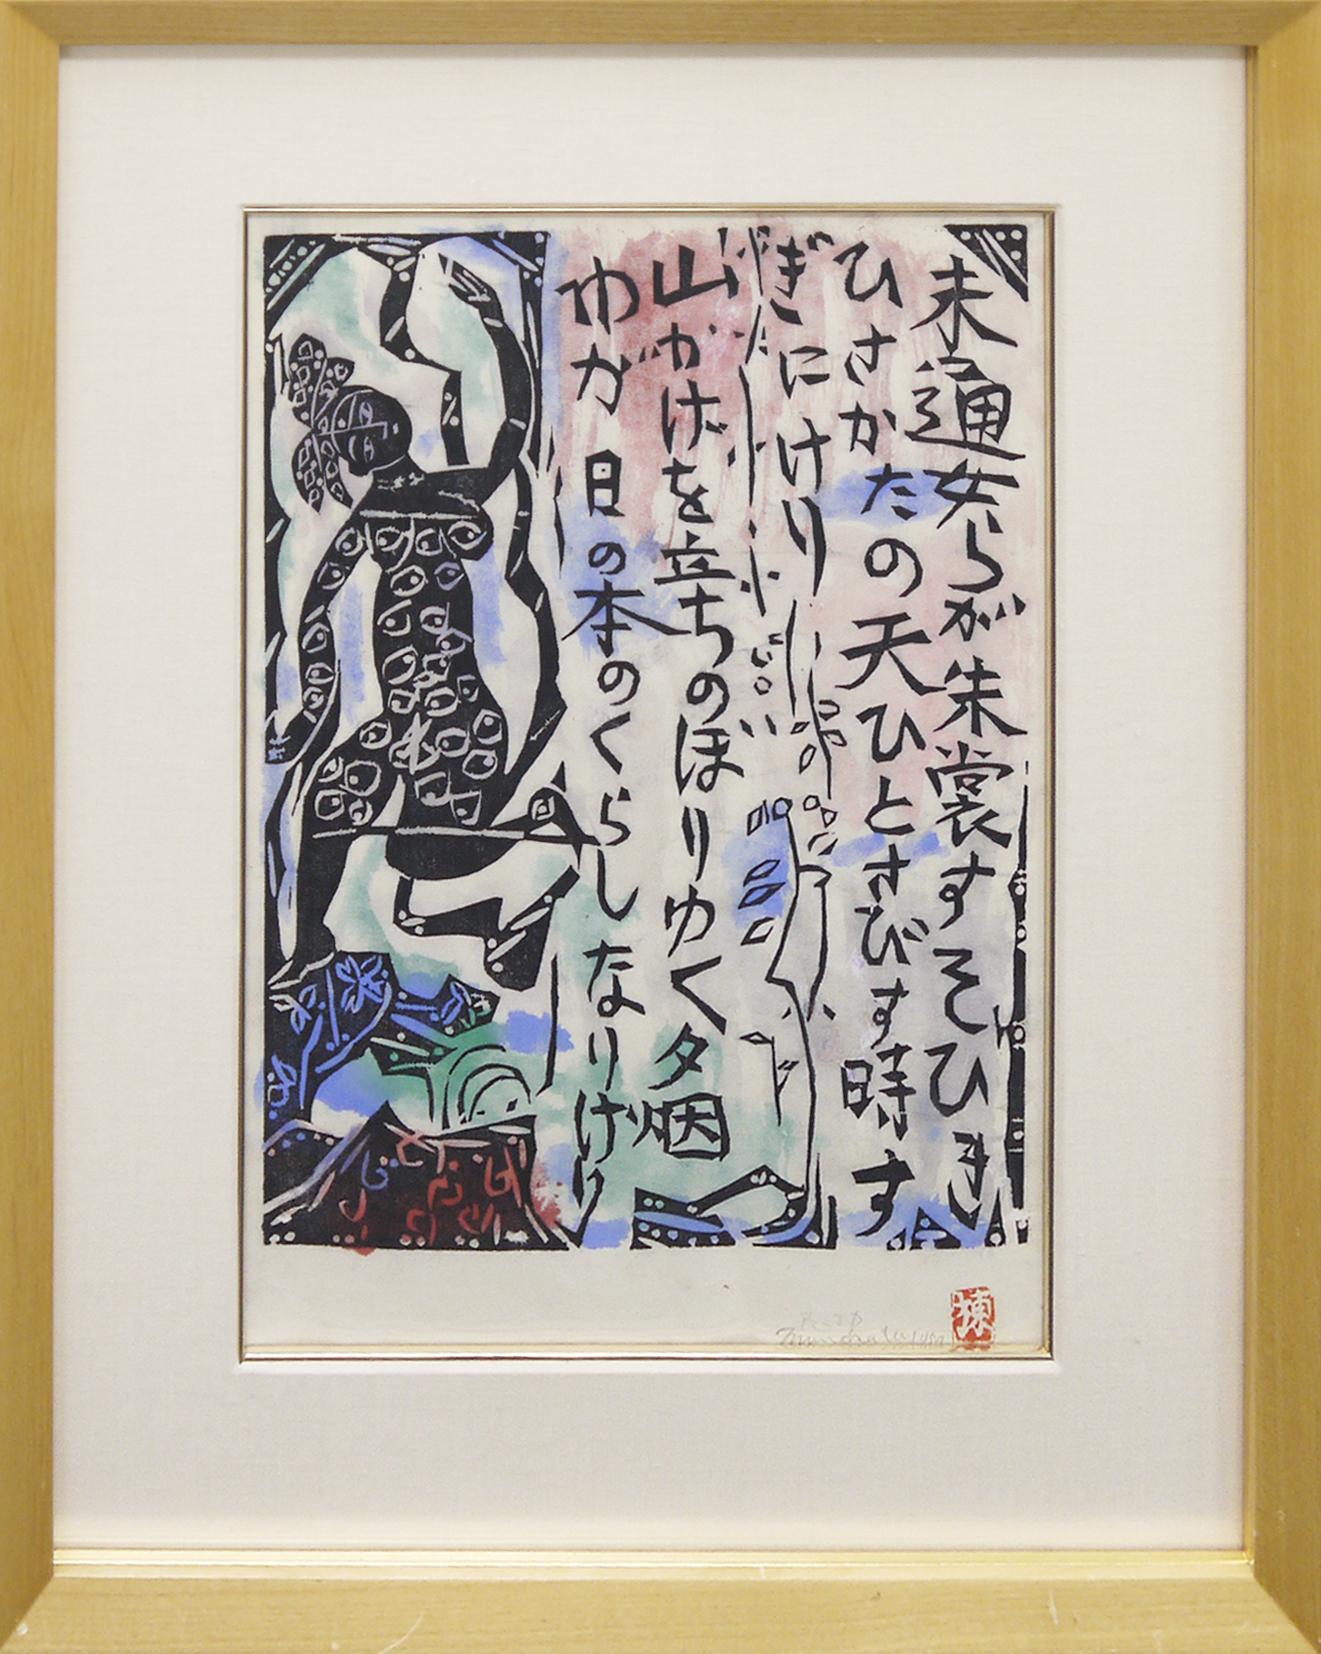 未通女らが朱裳すそひき
ひさかたの天ひとさびす時す
ぎにけり
山かげを立ちのぼりゆく夕烟
わが日の本のくらしなりけり
棟